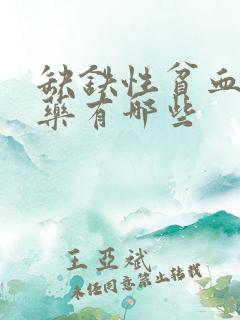 缺鉄性貧血
藥有哪些
王亞斌
未经同意禁止转载